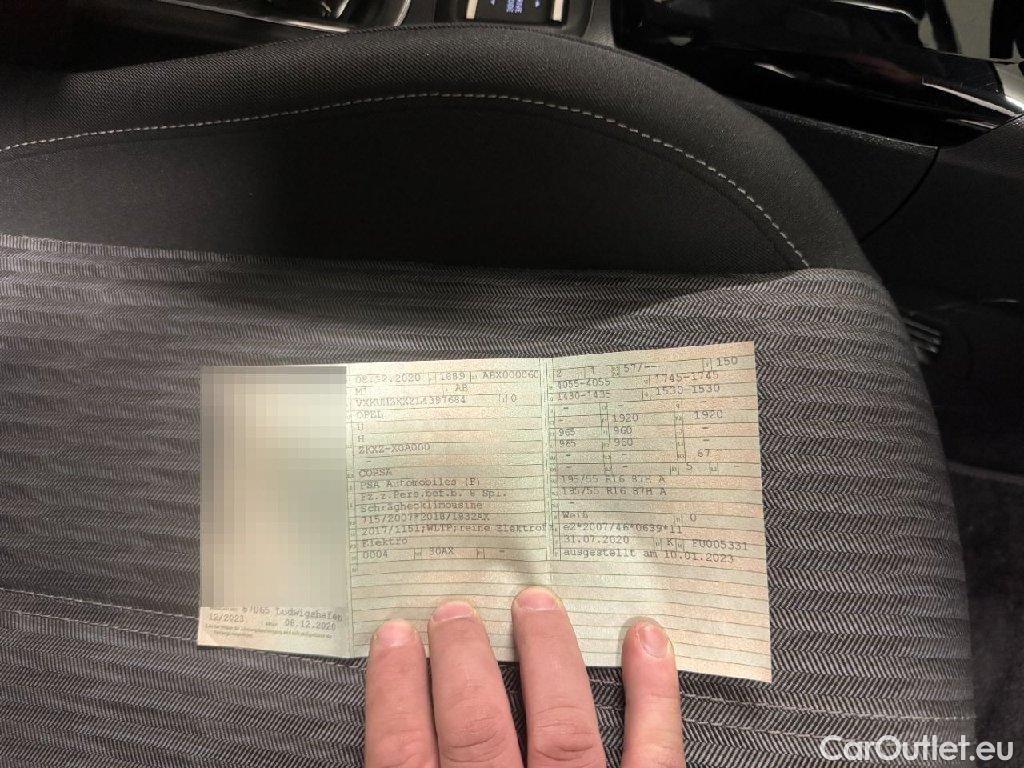 67065 Ludwigshafen
12/2023 08.12.2020
08.12.2020 1889 ABX00006
M1 AB
0
OPEL
U
H
ZKXZ-X0A000
CORSA
PSA Automobiles (F)
Fz.z.Pers.bef.b. 8 Spl.
Schräghecklimousine
715/2007*2018/1832AX
2017/1151;WLTP;reine Elektrof
Elektro
0004 30AX -
2 1 57/-- 150
4055-4055 1745-1745
1430-1435 1530-1530
- - -
- 1920 1920
965 960 -
965 960 -
- - 67
- - 5
195/55 R16 87H A
195/55 R16 87H A
-
Weiß 0
e2*2007/46*0639*11
31.07.2020 K EU005331
ausgestellt am 10.01.2023
CarOutlet.eu